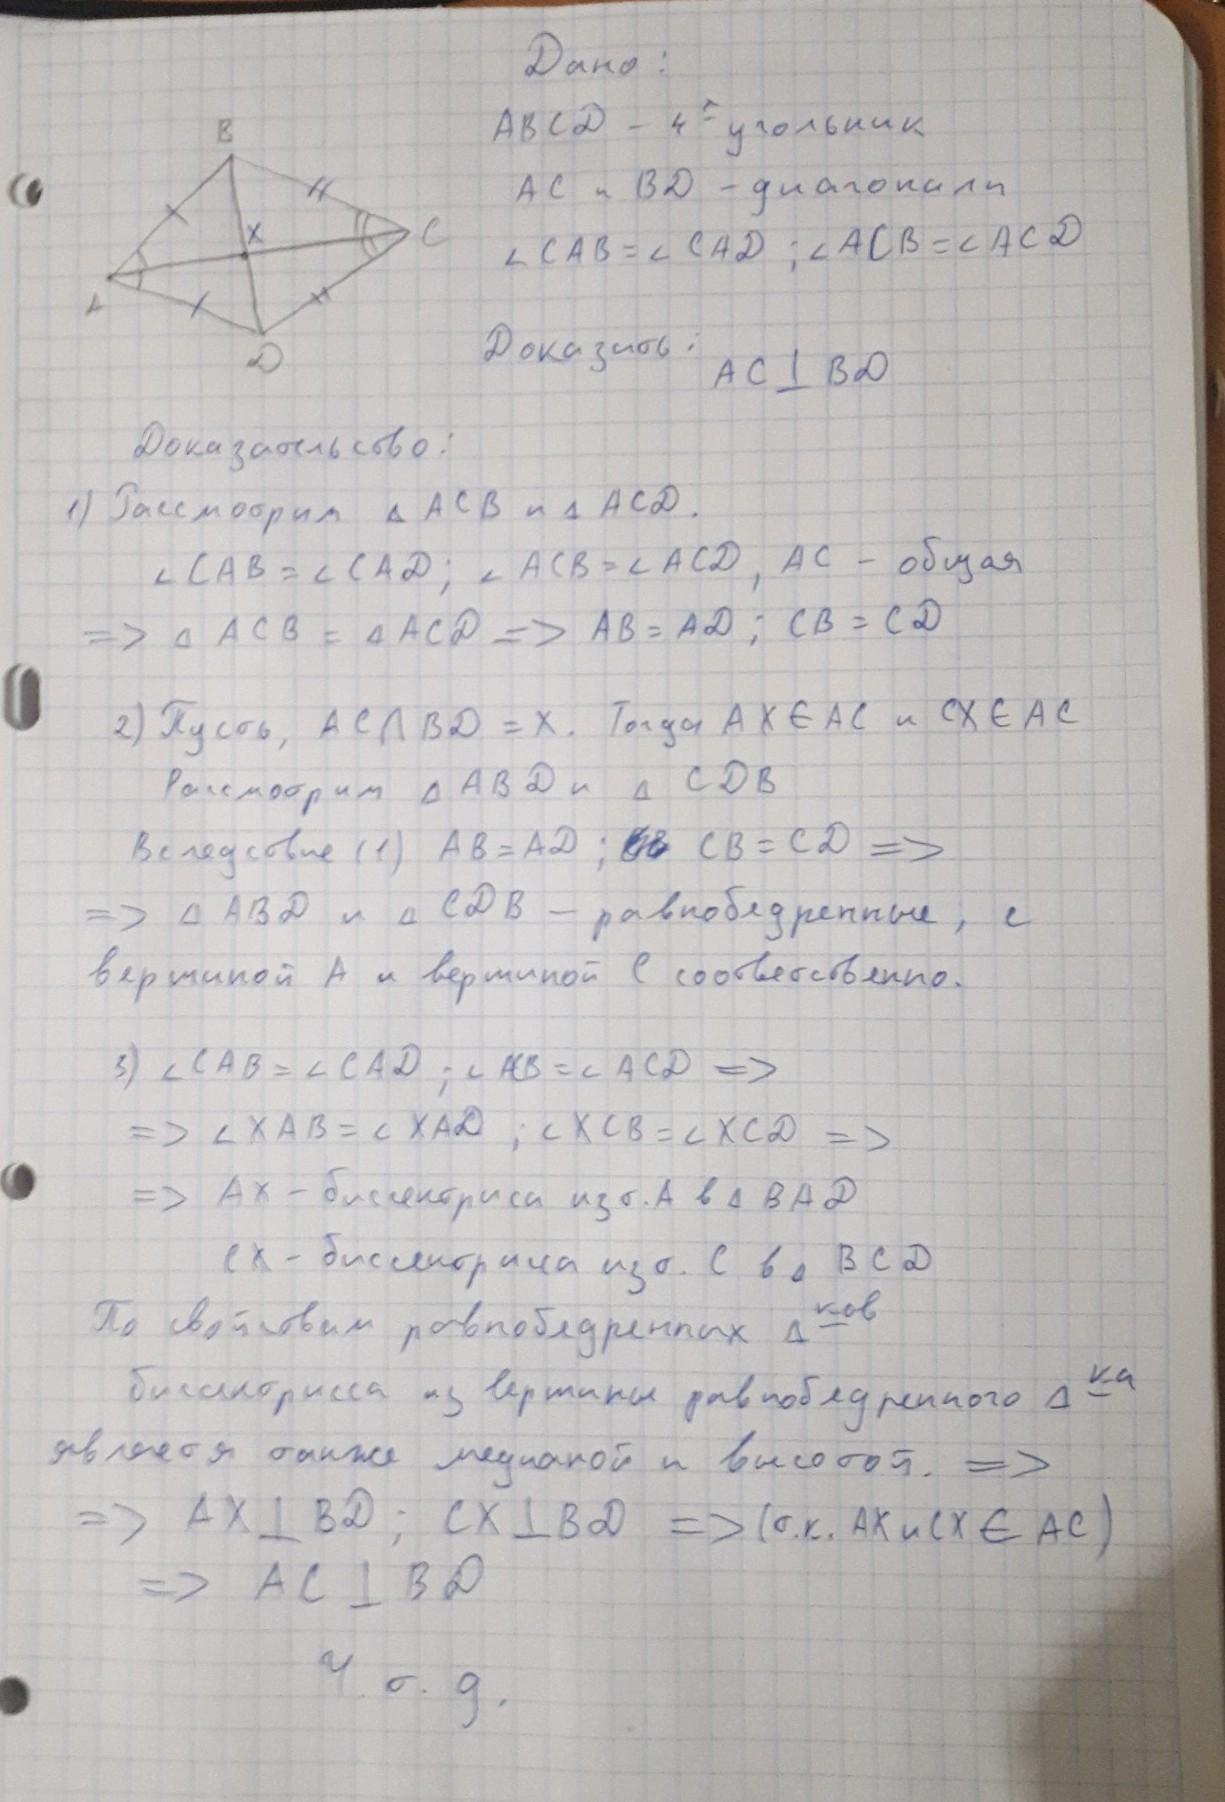 Дано:
ABCD - 4х угольник
AC и BD - диагонали
∠CAB = ∠CAD ; ∠ACB = ∠ACD
B
X
C
A
D
Доказать:
AC ⊥ BD
Доказательство:
1) Рассмотрим △ ACB и △ ACD.
∠CAB = ∠CAD; ∠ACB = ∠ACD, AC - общая
=> △ ACB = △ ACD => AB = AD ; CB = CD
2) Пусть, AC ∩ BD = X. Тогда AX ∈ AC и CX ∈ AC
Рассмотрим △ ABD и △ CDB
Вследствие (1) AB = AD ; CB = CD =>
=> △ ABD и △ CDB - равнобедренные, с
вершиной A и вершиной C соответственно.
3) ∠CAB = ∠CAD ; ∠ACB = ∠ACD =>
=> ∠XAB = ∠XAD ; ∠XCB = ∠XCD =>
=> AX - биссектриса из т. A в △ BAD
CX - биссектриса из т. C в △ BCD
По свойствам равнобедренных △ков
биссектрисса из вершины равнобедренного △ка
является также медианой и высотой. =>
=> AX ⊥ BD ; CX ⊥ BD => (т.к. AX и CX ∈ AC)
=> AC ⊥ BD
Ч. т. д.